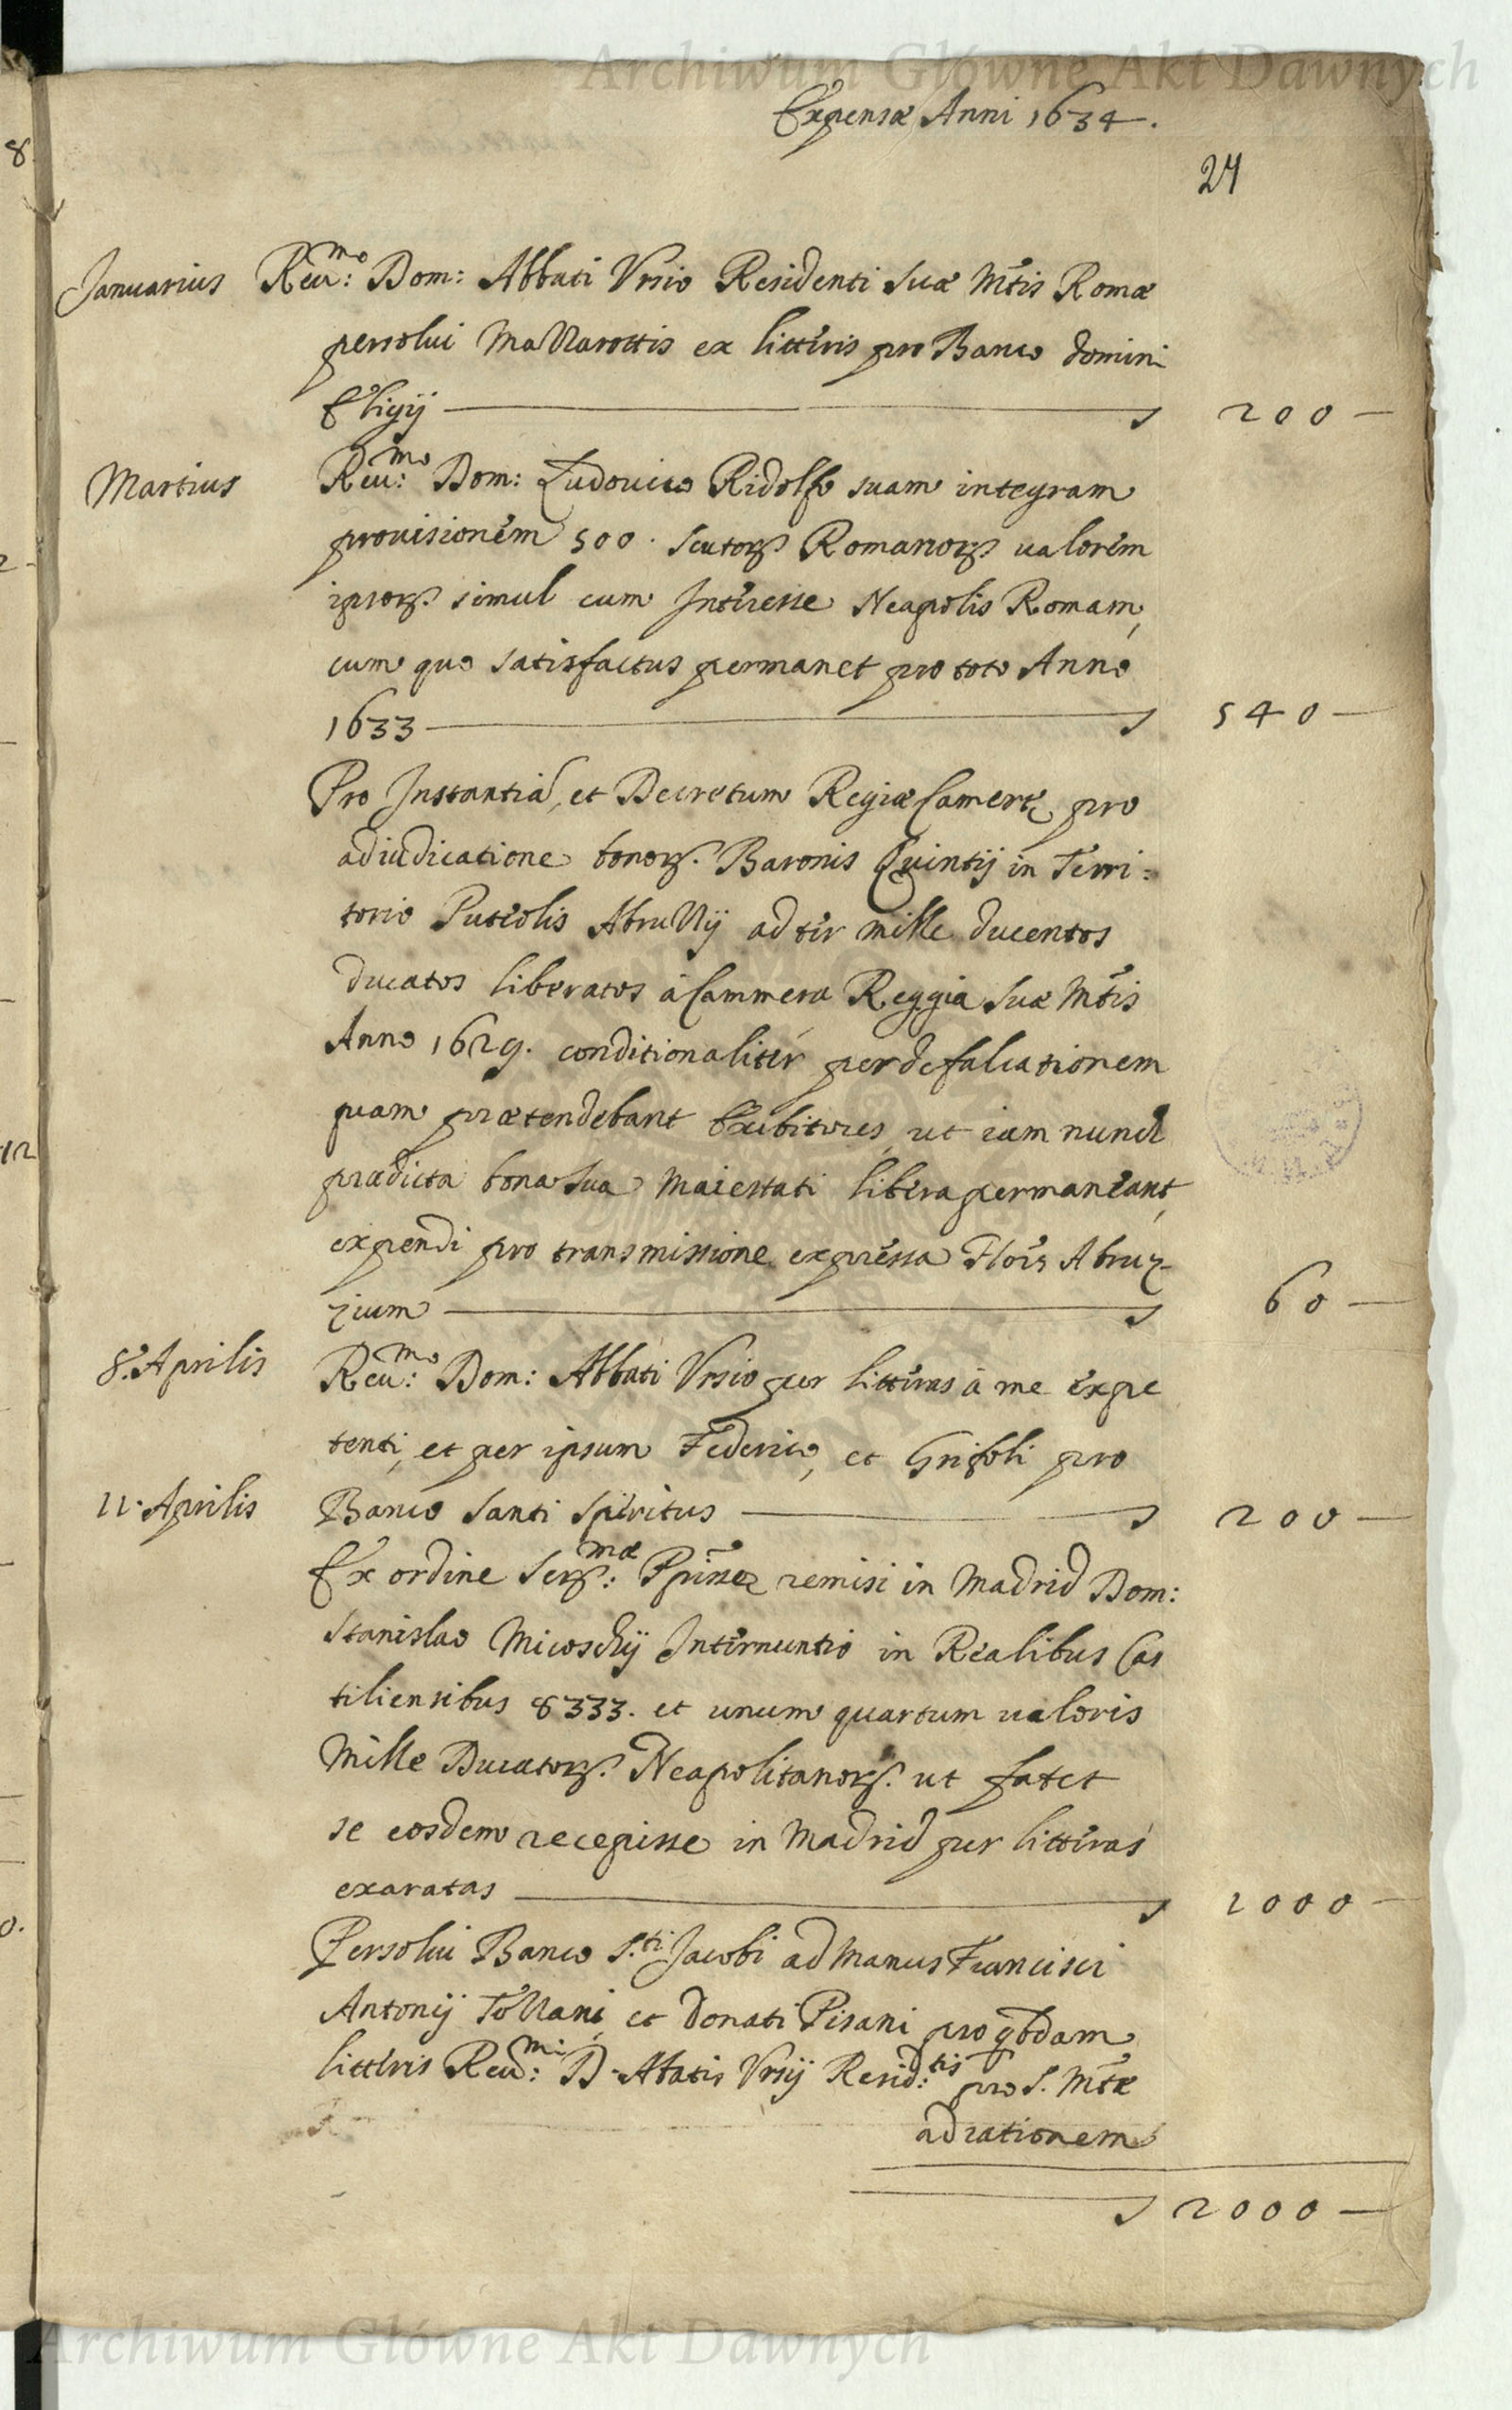 Archiwum Główne Akt Dawnych
Expensæ Anni 1634.
8
24
Januarius Reu:mo Dom: Abbati Vrsio Residenti Suæ Mtis Romæ
persolui Mazzarottis ex litteris pro Banco domini
Eligij 200
Martius Reu:mo Dom: Ludouico Ridolfo suam integram
prouisionem 500. scutorum Romanorum ualorem
ipsorum simul cum Interesse Neapolis Romam,
cum quo satisfactus permanet pro toto Anno
1633 540
Pro Instantia, et Decretum Regiæ Cameræ pro
adiudicatione bonorum Baronis Quintij in Terri:
torio Puteolis Abruzzij ad ter mille ducentos
ducatos liberatos à Cammera Reggia Suæ Mtis
Anno 1629. conditionaliter per defalcationem
quam prætendebant Exibitores, ut iam nunc
prædicta bona Sua Maiestati libera permaneant,
expendi pro transmissione expressa Abruz-
zium 60
8. Aprilis Reu:mo Dom: Abbati Vrsio per litteras à me expe
tenti, et per ipsum Federico, et Grifoli pro
11. Aprilis Banco Santi Spiritus 200
Ex ordine Ser:mæ remisi in Madrid Dom:
Stanislao Micoschij Internuntio in Realibus Cas
tiliensibus 8333. et unum quartum ualoris
Mille Ducatorum Neapolitanorum ut fatet
se eosdem recepisse in Madrid per litteras
exaratas 1000
Persolui Banco S.ti Jacobi ad Manus Francisci
Antonij et Donati Pisani pro qbdam
litteris Reud:mi D. Abatis Vrsij Resid:tis pro S. Mtæ
ad rationem
2000
12
0.
Archiwum Główne Akt Dawnych